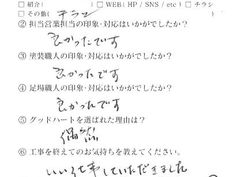 □ 紹介( ) □ WEB( HP / SNS / etc ) □ チラシ
□ その他( チラシ
② 担当営業担当の印象・対応はいかがでしたか？
良かったです
③ 塗装職人の印象・対応はいかがでしたか？
良かったです
④ 足場職人の印象・対応はいかがでしたか？
良かったです
⑤ グッドハートを選ばれた理由は？
偶然
⑥ 工事を終えてのお気持ちを教えてください。
いい仕事していただきました